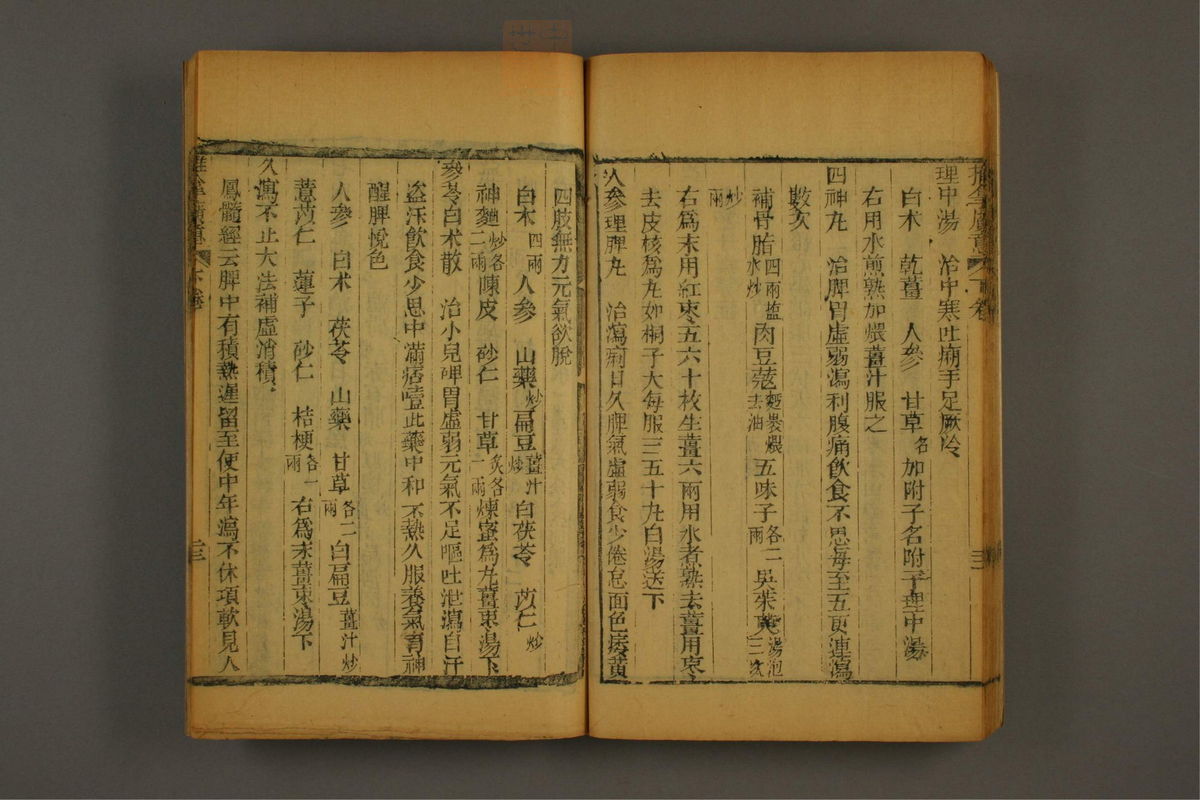 理中湯　治中寒吐痢手足厥冷
白朮　乾薑　人參　甘草　各　加附子名附子理中湯
右用水煎熟加煨薑汁服之
四神丸　治脾胃虛弱瀉利腹痛飲食不思每至五更連瀉
數次
補骨脂　四兩盐水炒　肉豆蔻　麵裹煨去油　五味子　各二兩　吳茱萸　湯泡三次
炒兩
右爲末用紅棗五六十枚生薑六兩用水煮熟去薑用棗
去皮核爲丸如桐子大每服三五十丸白湯送下
人參理脾丸　治瀉痢日久脾氣虛弱食少倦怠面色痿黃
四肢無力元氣欲脫
白朮　四兩　人參　山藥　炒　扁豆　薑汁炒　白茯苓　苡仁　炒
神麯　炒各二兩　陳皮　砂仁　甘草　炙各一兩　煉蜜爲丸薑棗湯下
參苓白朮散　治小兒脾胃虛弱元氣不足嘔吐泄瀉自汗
盜汗飲食少思中滿痞噎此藥中和不熱久服養氣育神
醒脾悅色
人參　白朮　茯苓　山藥　甘草　各二兩　白扁豆　薑汁炒
薏苡仁　蓮子　砂仁　桔梗　各一兩　右爲末薑棗湯下
久瀉不止大法補虛消積
鳳髓經云脾中有積熱遲留至使中年瀉不休項軟見人
下卷